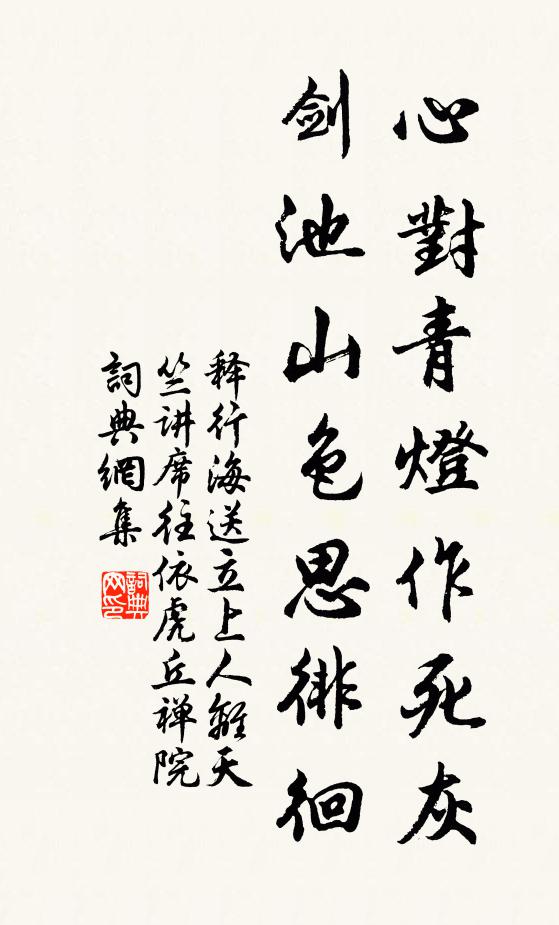 心對青燈作死灰
劍池山色思徘徊
释行海送立上人離天
竺讲席往依虎丘禅院
詞典網集
詞典
网印